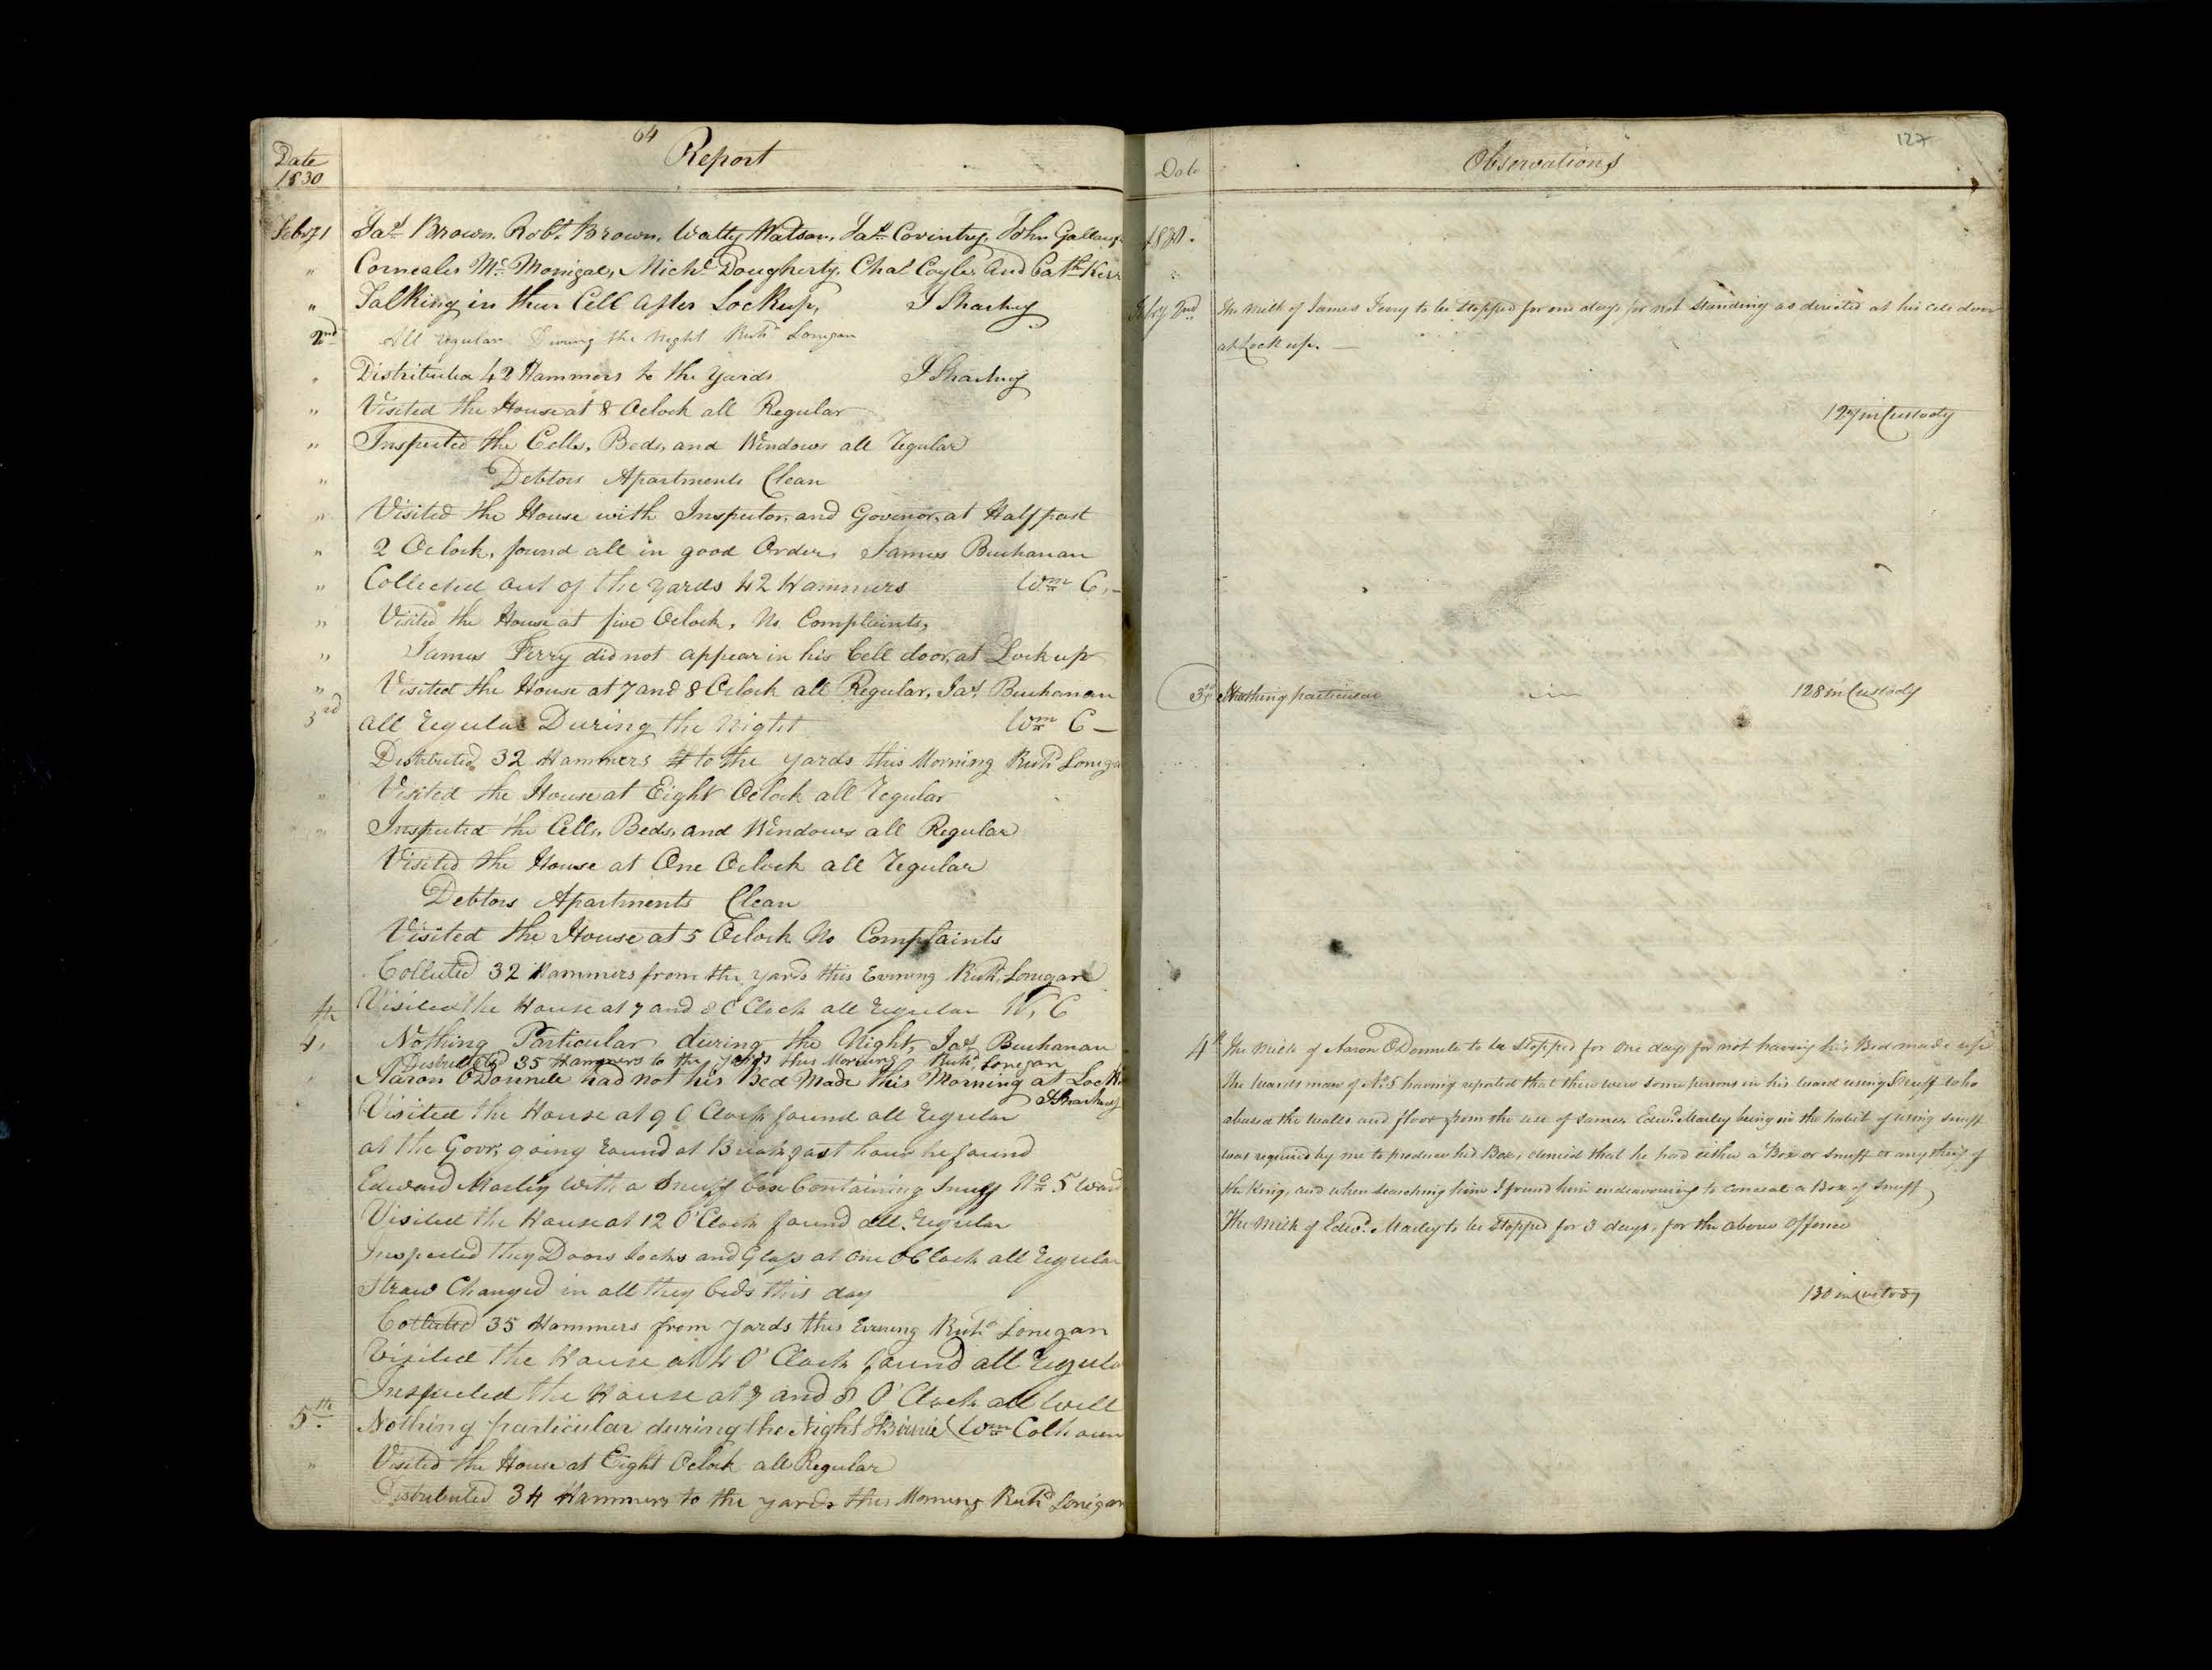 64
Date
1830
Report
Feby 1 Jas Brown. Robt Brown, Watty Watson, Jas Coventry, John Gallaugr
" Cornealis Mc Monigal, Michl Dougherty, Chas Coyle, and Patk Kerr
" Talking in their Cell after Lockup, J Sharkey
2nd All regular During the Night Richd Lonigan
" Distributed 42 Hammers to the Yards J Sharkey
" Visited the House at 8 Oclock all Regular
" Inspected the Cells, Beds, and Windows all Regular
" Debtors Apartments Clean
" Visited the House with Inspector, and Govenor, at Half past
" 2 Oclock, found all in good Order, James Buchanan
" Collected out of the yards 42 Hammers Wm C,-
" Visited the House at five Oclock, No Complaints,
" James Ferry did not appear in his Cell door, at Lock up
" Visited the House at 7 and 8 Oclock all Regular, Jas Buchanan
3rd all regular During the Night Wm C—
Distributed 32 Hammers to the yards this Morning Richd Loniga
" Visited the House at Eight Oclock all Regular
" Inspected the Cells, Beds, and Windows all Regular
Visited the House at One Oclock all Regular
Debtors Apartments Clean
Visited the House at 5 Oclock No Complaints
Collected 32 Hammers from the yards this Evening Richd Lonigan
4th Visited the House at 7 and 8 O Clock all regular W, C
4" Nothing Particular during the Night, Jas Buchanan
Distributed 35 Hammers to the yards this Morning Richd Lonigan
Aaron ODonnell had not his Bed Made this Morning at Lock
J Sharkey
Visited the House at 9 O Clock found all regular
at the Govr, going round at Breakfast hour he found
Edward Marley with a Snuff box Containing Snuff No 5 Ward
Visited the House at 12 O'Clock found all regular
Inspected they Doors Locks and Glass at one O Clock all regular
Straw Changed in all they beds this day
Collected 35 Hammers from yards this Evening Richd Lonigan
Visited the House at 4 O'Clock found all regula
Inspected the House at 7 and 8 O'Clock all Well
5th Nothing particular during the Night Wm Colhoun
" Visited the House at Eight Oclock all Regular
Distributed 34 Hammers to the yards this Morning Richd Lonigan
127
Date
Observations
1830.
Feby 2nd The Milk of James Ferry to be stopped for one day for not standing as directed at his cell door
at Lock up. —
127 in Custody
3rd Nothing particular 128 in Custody
4th The Milk of Aaron ODonnell to be stopped for one day for not having his Bed made up
The wards man of No 5 having reported that there were some persons in his ward using Snuff who
abused the walls and floor from the use of same, Edwd Marley being in the habit of using snuff
was required by me to produce his Box, denied that he had either a Box or snuff or any thing of
the king, and when searching him I found him endeavouring to conceal a Box of snuff
The Milk of Edwd Marley to be stopped for 3 days, for the above offence
130 in Custody